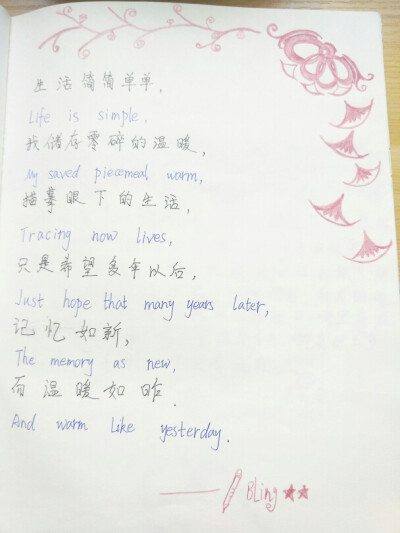 生活简简单单，
Life is simple,
我储存零碎的温暖，
My saved piecemeal warm,
描摹眼下的生活，
Tracing now lives,
只是希望多年以后，
Just hope that many years later,
记忆如新，
The memory as new,
而温暖如昨.
And warm like yesterday.
—— Bling★★